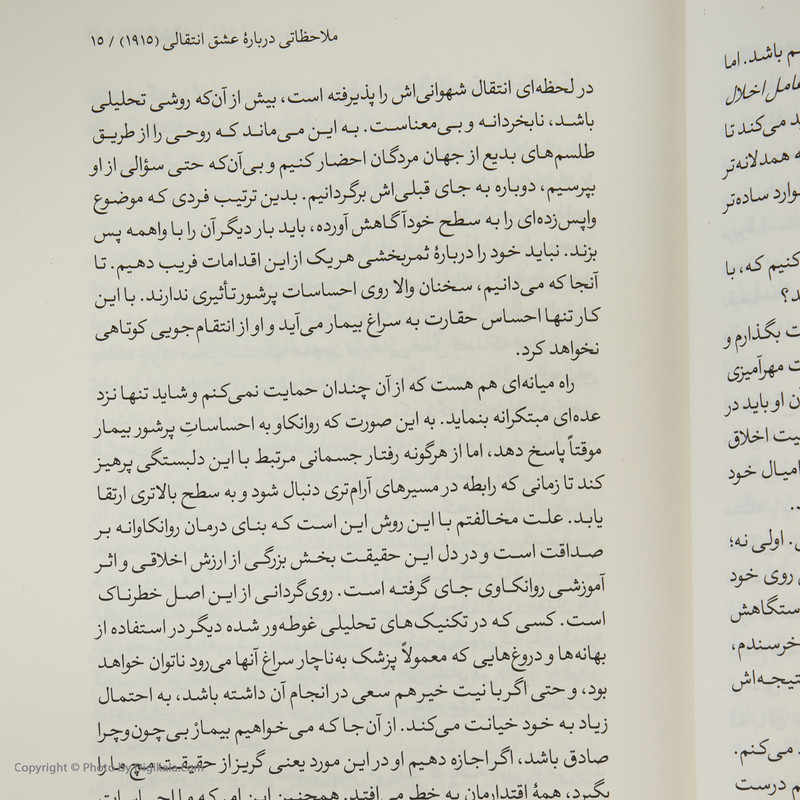 ملاحظاتی دربارهٔ عشق انتقالی (۱۹۱۵) / ۱۵
در لحظه‌ای انتقال شهوانی‌اش را پذیرفته است، بیش از آن‌که روشی تحلیلی
باشد، نابخردانه و بی‌معناست. به این می‌ماند که روحی را از طریق
طلسم‌های بدیع از جهان مردگان احضار کنیم و بی‌آن‌که حتی سؤالی از او
بپرسیم، دوباره به جای قبلی‌اش برگردانیم. بدین ترتیب فردی که موضوع
واپس‌زده‌ای را به سطح خودآگاهش آورده، باید بار دیگر آن را با واهمه پس
بزند. نباید خود را دربارهٔ ثمربخشی هر یک از این اقدامات فریب دهیم. تا
آنجا که می‌دانیم، سخنان والا روی احساسات پرشور تأثیری ندارند. با این
کار تنها احساس حقارت به سراغ بیمار می‌آید و او از انتقام‌جویی کوتاهی
نخواهد کرد.
راه میانه‌ای هم هست که از آن چندان حمایت نمی‌کنم و شاید تنها نزد
عده‌ای مبتکرانه بنماید. به این صورت که روانکاو به احساساتِ پرشور بیمار
موقتاً پاسخ دهد، اما از هرگونه رفتار جسمانی مرتبط با این دلبستگی پرهیز
کند تا زمانی که رابطه در مسیرهای آرام‌تری دنبال شود و به سطح بالاتری ارتقا
یابد. علت مخالفتم با این روش این است که بنای درمان روانکاوانه بر
صداقت است و در دل این حقیقت بخش بزرگی از ارزش اخلاقی و اثر
آموزشی روانکاوی جای گرفته است. روی‌گردانی از این اصل خطرناک
است. کسی که در تکنیک‌های تحلیلی غوطه‌ور شده دیگر در استفاده از
بهانه‌ها و دروغ‌هایی که معمولاً پزشک به‌ناچار سراغ آنها می‌رود ناتوان خواهد
بود، و حتی اگر با نیت خیر هم سعی در انجام آن داشته باشد، به احتمال
زیاد به خود خیانت می‌کند. از آن‌جا که می‌خواهیم بیمارْ بی‌چون‌وچرا
صادق باشد، اگر اجازه دهیم او در این مورد یعنی گریز از حقیقت مچ ما را
بگیرد، همهٔ اقتدارمان به خطر می‌افتد. همچنین این امر که ما احساسات
م باشد. اما
عامل اخلال
د می‌کند تا
ه همدلانه‌تر
وارد ساده‌تر
کنیم که، با
د؟
ت بگذارم و
ت مهرآمیزی
ن او باید در
یت اخلاق
امیال خود
. اولی نه؛
روی خود
ستگاهش
خرسندم،
تیجه‌اش
د می‌کنم.
م درست
Copyright © Photo by Digikala.com